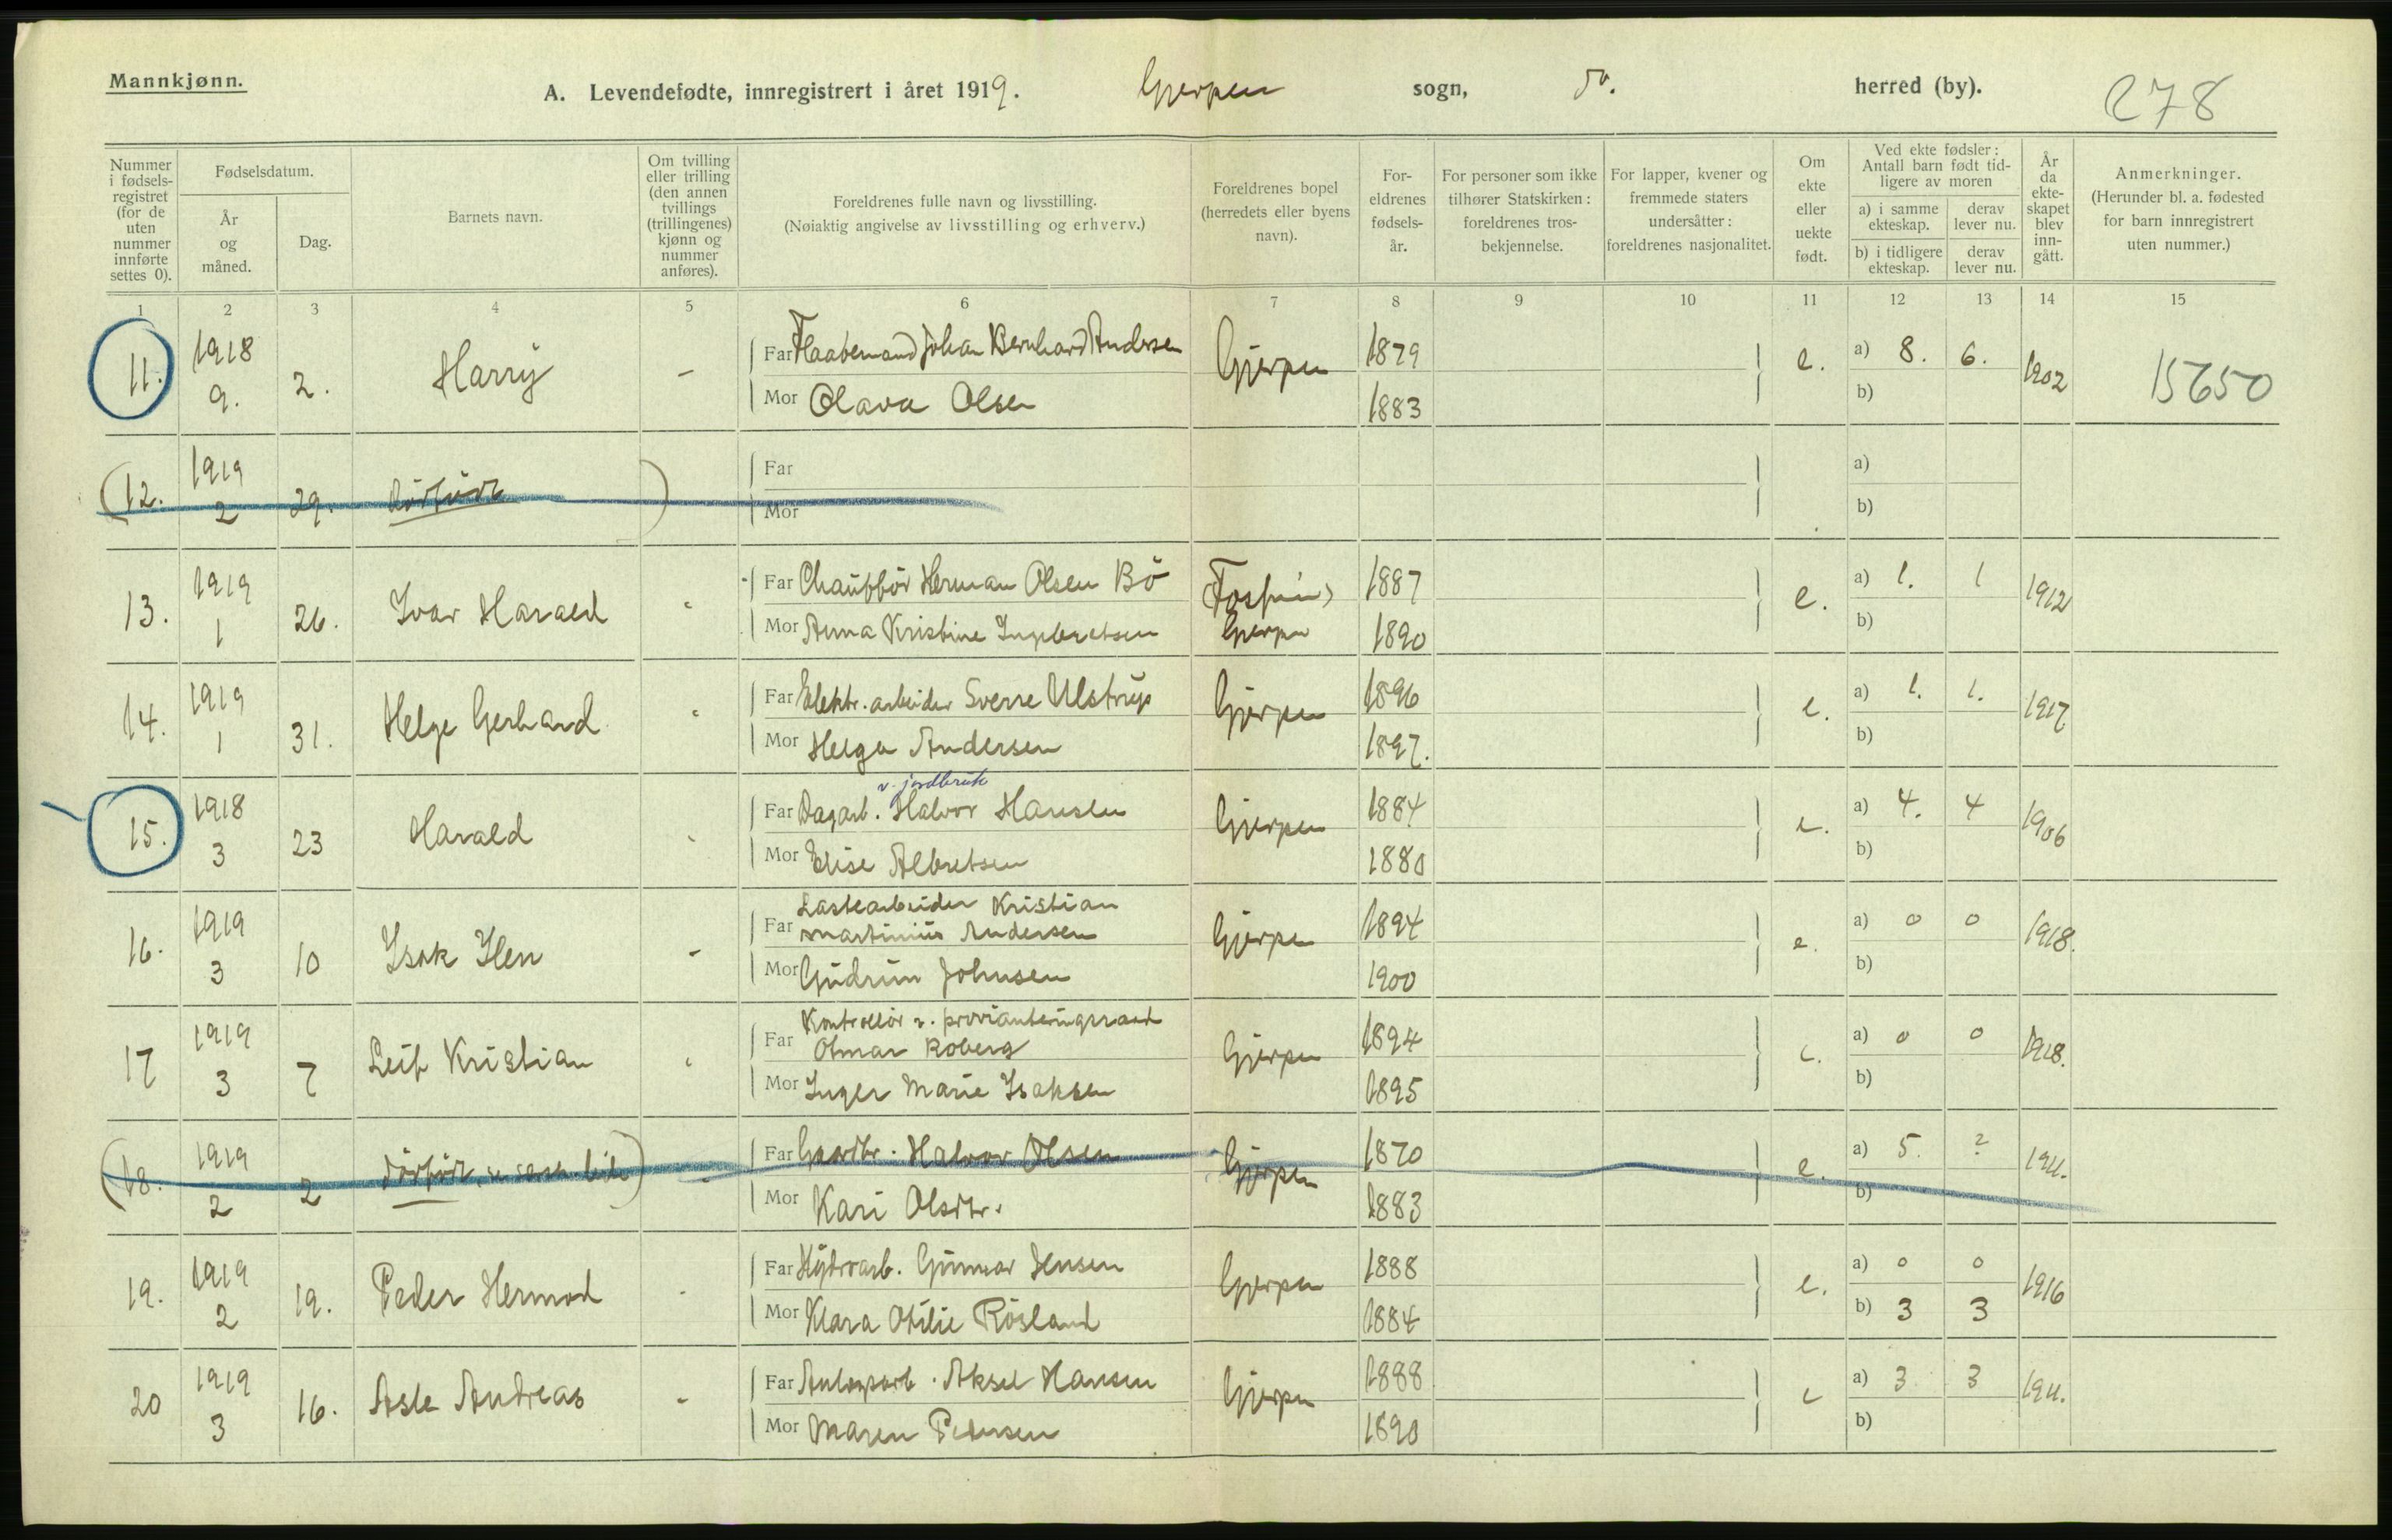 Mannkjønn.
A. Levendefødte, innregistrert i året 1919. Gjerpen sogn, do. herred (by). 278
Nummer i fødselsregistret (for de uten nummer innførte settes 0).
Fødselsdatum.
År og måned.
Dag.
Barnets navn.
Om tvilling eller trilling (den annen tvillings (trillingenes) kjønn og nummer anføres).
Foreldrenes fulle navn og livsstilling.
(Nøiaktig angivelse av livsstilling og erhverv.)
Foreldrenes bopel (herredets eller byens navn).
Foreldrenes fødselsår.
For personer som ikke tilhører Statskirken: foreldrenes trosbekjennelse.
For lapper, kvener og fremmede staters undersåtter: foreldrenes nasjonalitet.
Om ekte eller uekte født.
Ved ekte fødsler: Antall barn født tidligere av moren
a) i samme ekteskap. derav lever nu.
b) i tidligere ekteskap. derav lever nu.
År da ekteskapet blev inngått.
Anmerkninger.
(Herunder bl. a. fødested for barn innregistrert uten nummer.)
1 2 3 4 5 6 7 8 9 10 11 12 13 14 15
11. 1918 9. 2. Harry - Far Johan Bernhard Andersen Gjerpen 1879 e. a) 8. 6. 1902 15650
Mor Olava Olsen 1883 b)
(12. 1919 2 29. dødfødt) Far a)
Mor b)
13. 1919 1 26. Ivar Harald Far Chauffør Herman Olsen Bö Gjerpen 1887 e. a) 1. 1 1912
Mor Anna Kristine Ingebretsen 1890 b)
14. 1919 1 31. Helge Gerhard Far Elektr. arbeider Sverre Ulstrup Gjerpen 1896 e. a) 1. 1. 1917
Mor Helga Andersen 1897. b)
v. jordbruk
15. 1918 3 23 Harald Far Dagarb. Halvor Hansen Gjerpen 1884 e. a) 4. 4 1906
Mor Elise Albretsen 1880 b)
16. 1919 3 10 Isak Iten - Far Lastearbeider Kristian Martinius Andersen Gjerpen 1894 e. a) 0 0 1918.
Mor Gudrun Johnsen 1900 b)
17 1919 3 7 Leif Kristian Far Kontrollör v. provianteringsraad Otmar Roberg Gjerpen 1894 e. a) 0 0 1918.
Mor Inger Marie Isaksen 1895 b)
(18. 1919 2 2 dødfødt,) - Far Gardbr. Halvor Olsen Gjerpen 1870 e. a) 5. ? 1911.
Mor Kari Olsdtr. 1883 b)
19. 1919 2 19. Peder Hermod - Far Hydroarb. Gunnar Jensen Gjerpen 1888 e. a) 0 0 1916
Mor Klara Otilie Rösland 1884 b) 3 3
20 1919 3 16. Asle Andreas - Far Aksel Hansen Gjerpen 1888 e a) 3 3 1911.
Mor Maren Pedersen 1890 b)